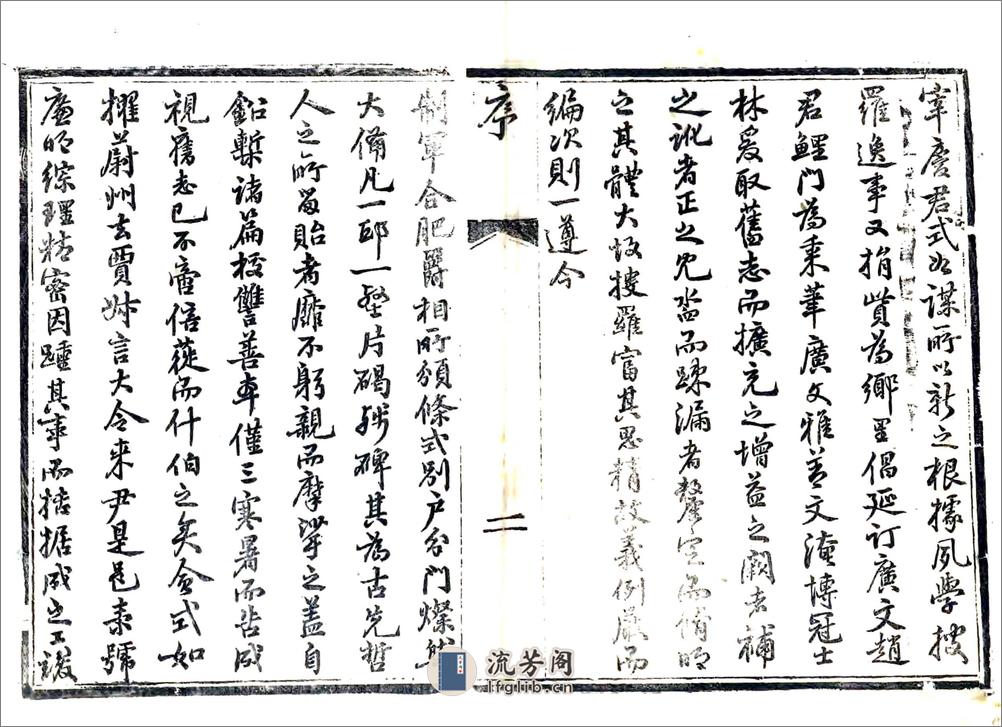 宰慶君式如謀所以新之根據夙學搜
羅逸事又捐貲為鄉里倡延訂廣文趙
君鯉門為秉筆廣文雅善文淹博冠士
林爰取舊志而擴充之增益之闕者補
之訛者正之冗沓而踈漏者釐定而脩明
之其體大故搜羅富其思精故義例嚴而
編次則一遵今
序
二
制軍合肥爵相所頒條式別戶分門燦然
大備凡一邱一壑片碣殘碑其為古先哲
人之所留貽者靡不躬親而摩挲之蓋自
鉛槧諸篇校讎善本僅三寒暑而告成
視舊志已不啻倍蓰而什伯之矣僉式如
擢蔚州去賈姊言大令來尹是邑素號
廉明綜理精密因踵其事而拮据成之工竣
流芳阁
lfglib.cn